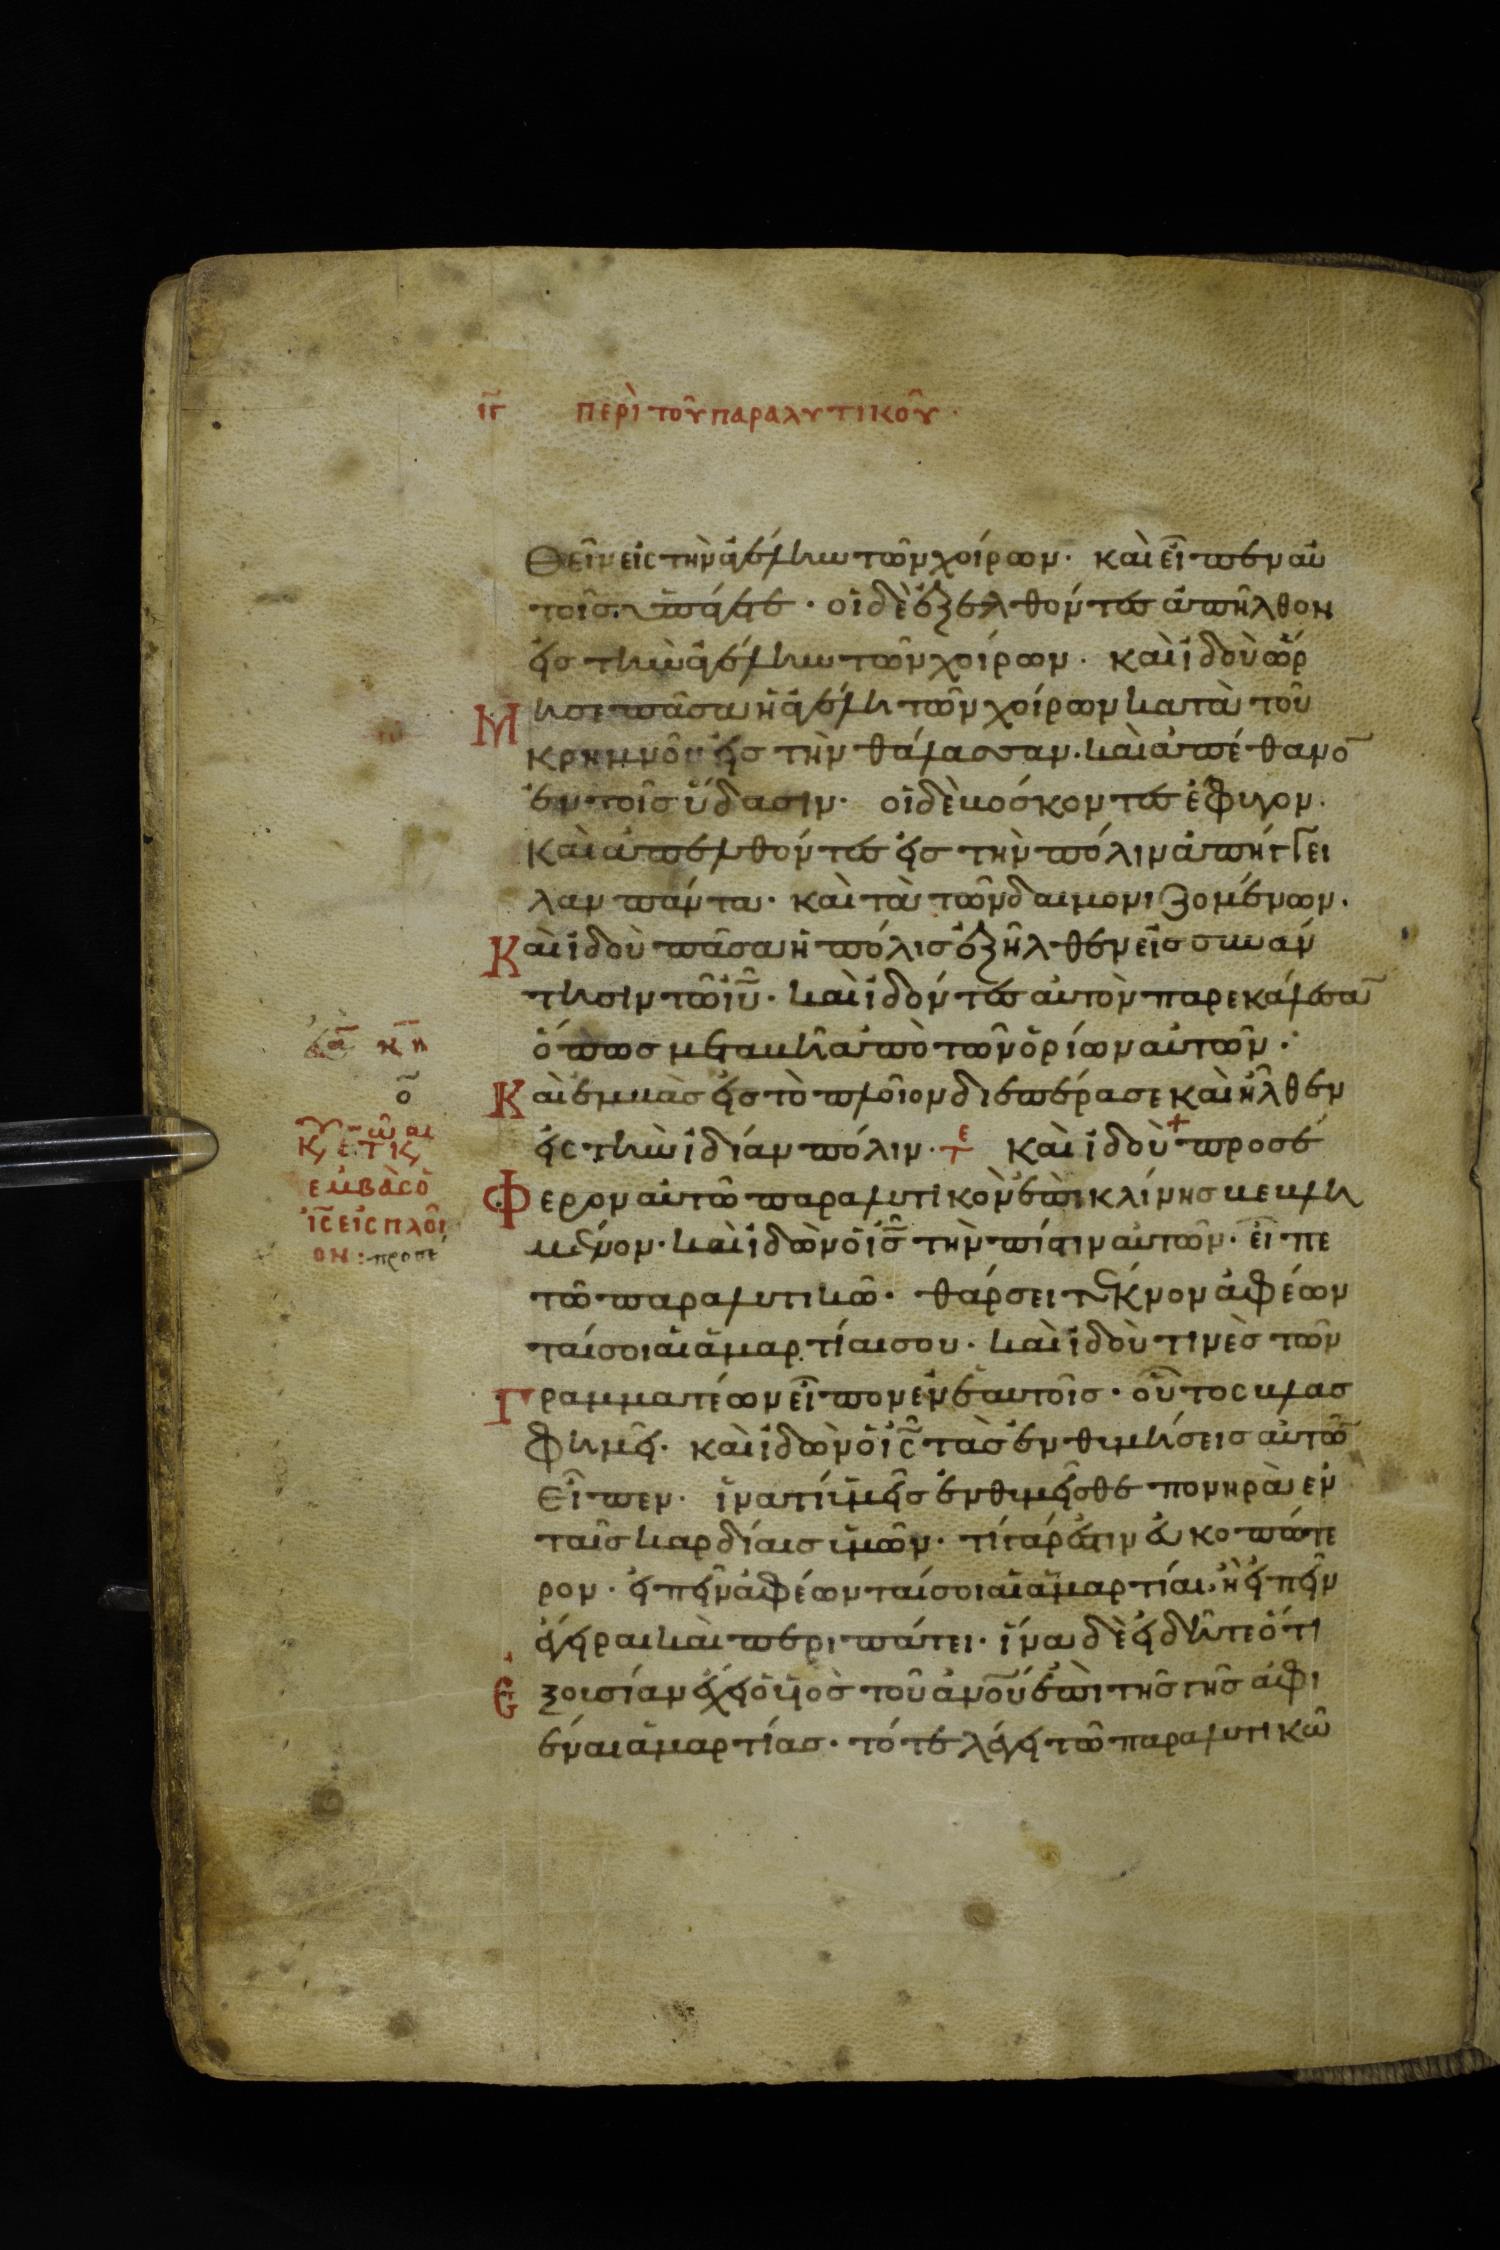 ιγ περὶ τοῦ παραλυτικοῦ·
θεῖν εἰς τὴν ἀγέλην τῶν χοίρων· καὶ εἶπεν αὐ
τοῖς ὑπάγετε· οἱ δὲ ἐξελθόντες ἀπῆλθον
εἰς τὴν ἀγέλην τῶν χοίρων· καὶ ἰδοὺ ὥρ
μησε πᾶσα ἡ ἀγέλη τῶν χοίρων κατὰ τοῦ
κρημνοῦ εἰς τὴν θάλασσαν· καὶ ἀπέθανο̅
ἐν τοῖς ὕδασιν· οἱ δὲ βόσκοντες ἔφυγον·
καὶ ἀπελθόντες εἰς τὴν πόλιν ἀπήγγει
λαν πάντα· καὶ τὰ τῶν δαιμονιζομένων·
Καὶ ἰδοὺ πᾶσα ἡ πόλις ἐξῆλθεν εἰς συνάν
τησιν τῶ ἰ̅υ̅· καὶ ἰδόντες αὐτὸν παρεκάλεσα̅
ὅπως μεταβῆ ἀπὸ τῶν ὁρίων αὐτῶν·
Καὶ ἐμβὰς εἰς τὸ πλοῖον διεπέρασε καὶ ἦλθεν
εἰς τὴν ἰδίαν πόλιν· καὶ ἰδοὺ + προσέ
Φερον αὐτῶ παραλυτικὸν ἐπὶ κλίνης βεβλη
μένον· καὶ ἰδὼν ὁ ἰ̅ς̅ τὴν πίστιν αὐτῶν· εἶπε
τῶ παραλυτικῶ· θάρσει τέκνον ἀφέων
ταί σοι αἱ ἁμαρτίαι σου· καὶ ἰδοὺ τινὲς τῶν
Γραμματέων εἶπον ἐν ἑαυτοῖς· οὗτος βλασ
φημεῖ· καὶ ἰδὼν ὁ ἰ̅ς̅ τὰς ἐνθυμήσεις αὐτῶ̅
εἶπεν· ἱνατί ὑμεῖς ἐνθυμεῖσθε πονηρὰ ἐν
ταῖς καρδίαις ὑμῶν· τί γάρ ἐστιν εὐκοπώτε
ρον· εἰπεῖν ἀφέωνταί σοι αἱ ἁμαρτίαι, ἢ εἰπεῖν
ἔγειραι καὶ περιπάτει· ἵνα δὲ εἰδῆτε ὅτι
Ἐξουσίαν ἔχει ὁ υἱὸς τοῦ α̅ν̅ο̅υ̅ ἐπὶ τῆς γῆς ἀφι
έναι ἁμαρτίας· τότε λέγει τῶ παραλυτικῶ
ἐμβὰς ὁ
ἰ̅ς̅ εἰς πλοῖ
ον: